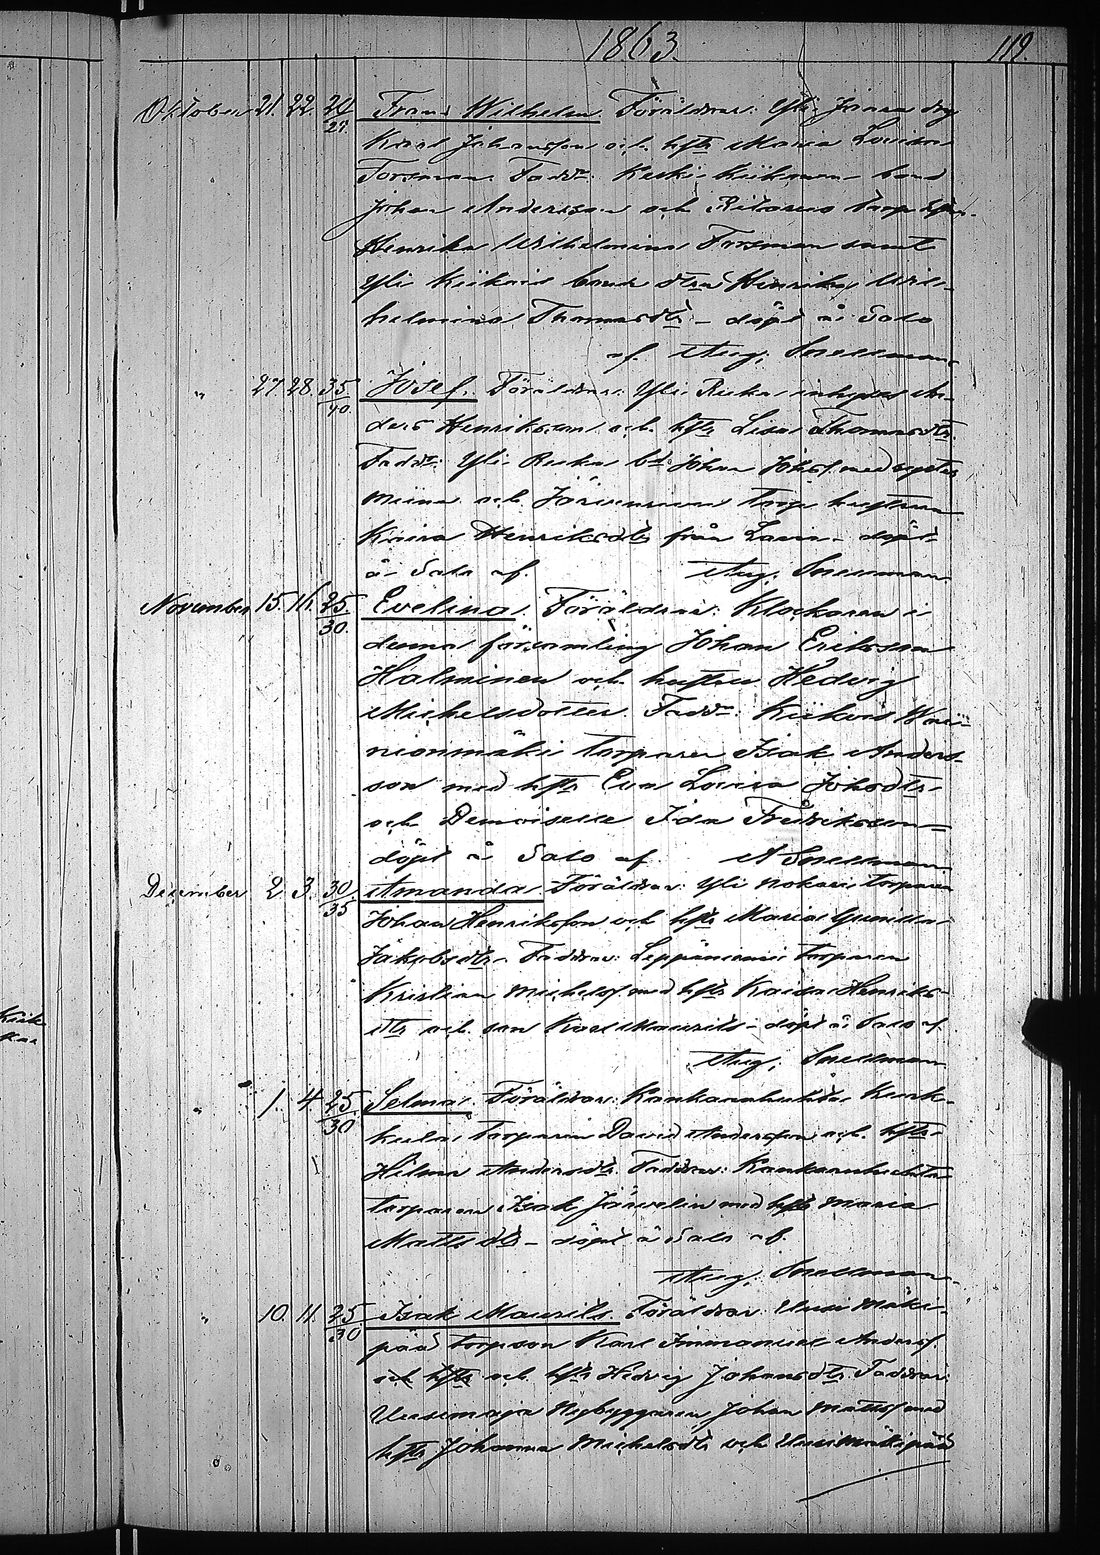 1863. 119.
Oktober 21. 22. 20/27. Frans Wilhelm. Föräldrar: Yli Jaara drg
Karl Johansson och hstr Maria Lovisa
Forsman. Faddr: Keski Kiikonen bond
Johan Andersson och Ritarus torp hstr
Henrika Wilhelmina Forsman samt
Yli Kiikois bond dtrn Henrika Wil-
helmina Thomasdtr – döpt å Salo
af Aug. Snellman
" 27. 28. 35/40. Josef. Föräldrar: Yli Reska inhyses An-
ders Henriksson och hstr Lisa Thomasdtr
Faddr: Yli Reska bd Johan Johsf. med syster
Miina och torp hustrun
Kaisa Henriksdtr från Lavia – döpt
å Salo af Aug. Snellman
November 15. 16. 25/30. Evelina. Föräldrar: Klockaren i
denna församling Johan Eriksson
Halminen och hustru Hedvig
Michelsdotter. Faddr: Kiikois
torparen Isak Anders-
son med hstr Eva Lovisa Johsdtr
och Demoiselle Ida Fredriksson –
döpt å Salo af A Snellman
December 2. 3. 30/35 Amanda Föräldrar: Yli Nokari torparen
Johan Henriksson och hstr Maria Gunilla
Jakobsdtr – Faddrar: Leppäniemi torparen
Kristian Michelsf med hstr Kaisa Henriks-
dtr och son Karl Maurits – döpt å Salo af
Aug. Snellman
" 1. 4. 25/30 Selma. Föräldrar: Kankaanhuhta
torparen David Andersson och hstr
Hilma Andersdtr. Faddrar: Kankaanhuhta
torparen Isak Järvelin med hstr Maria
Mattsdtr – döpt å Salo af
Aug. Snellman
" 10. 11. 25/30 Isak Maurits. Föräldrar: Uusi Mäki-
pää torpson Karl Immanuel Andersf.
och hstr och hstr Hedvig Johansdtr Faddrar:
Uusimaja Nybyggaren Johan Mattsf med
hstr Johanna Michelsdtr och Uusimäkipää